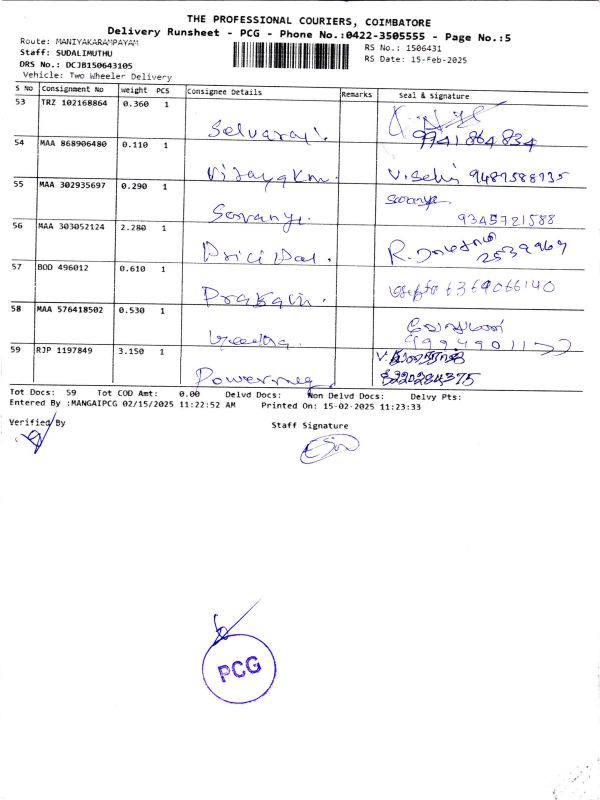 THE PROFESSIONAL COURIERS, COIMBATORE
Delivery Runsheet - PCG - Phone No.:0422-3505555 - Page No.:5
Route: MANIYAKARAMPAYAM
RS No.: 1506431
Staff: SUDALIMUTHU
RS Date: 15-Feb-2025
DRS No.: DCJB150643105
Vehicle: Two Wheeler Delivery
S No Consignment No Weight PCS Consignee Details Remarks Seal & Signature
53 TRZ 102168864 0.360 1 Selvaraj. 9741864834
54 MAA 868906480 0.110 1 Vijayakm. V. Selvi
55 MAA 302935697 0.290 1 Saranya. 9345721588
56 MAA 303052124 2.280 1 R. 2539969
57 BOD 496012 0.610 1 6369066140
58 MAA 576418502 0.530 1
59 RJP 1197849 3.150 1 V. 8220284375
Tot Docs: 59 Tot COD Amt: 0.00 Delvd Docs: Non Delvd Docs: Delvy Pts:
Entered By :MANGAIPCG 02/15/2025 11:22:52 AM Printed On: 15-02-2025 11:23:33
Verified By Staff Signature
PCG